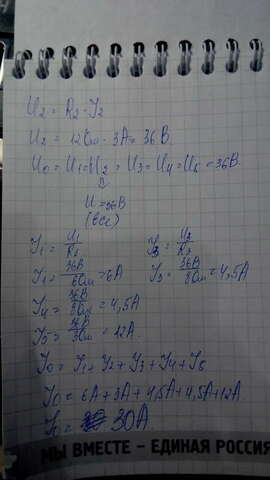 U₂ = R₂ · I₂
U₂ = 12 Ом · 3А = 36 В.
U₀ = U₁ = U₂ = U₃ = U₄ = U₅ = 36 В.
U = 36 В
(все)
I₁ = U₁/R₁ I₃ = U₂/R₃
I₁ = 36В/6 Ом = 6А I₃ = 36В/8 Ом = 4,5А
I₄ = 36В/8 Ом = 4,5А
I₅ = 36В/3 Ом = 12А
I₀ = I₁ + I₂ + I₃ + I₄ + I₅
I₀ = 6А + 3А + 4,5А + 4,5А + 12А
I₀ = 30А
МЫ ВМЕСТЕ – ЕДИНАЯ РОССИЯ